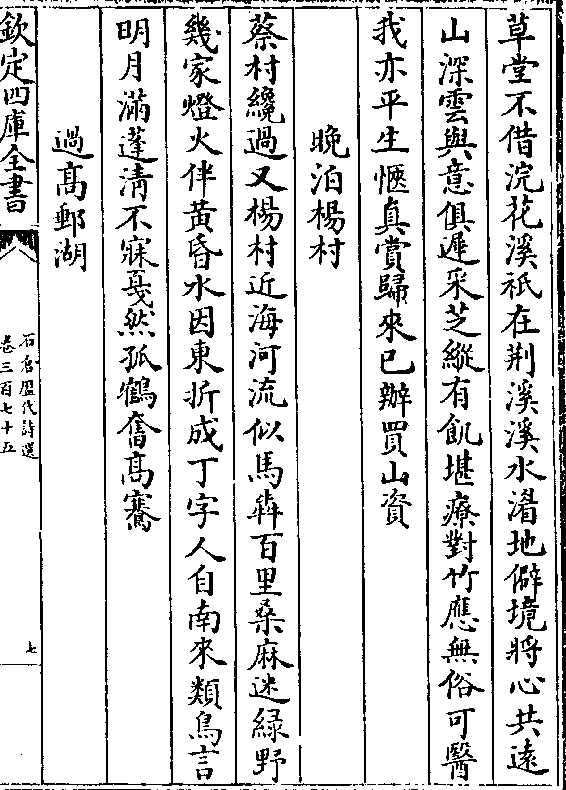 草堂不借浣花溪祇在荆溪溪水湄地僻境將心共遠
山深雲與意俱遲采芝縱有飢堪療對竹應無俗可醫
我亦平生愜真賞歸來已辦買山資
晚泊楊村
蔡村纔過又楊村近海河流似馬犇百里桑麻迷緑野
幾家燈火伴黄昏水因東折成丁字人自南來類鳥言
明月滿蓬清不寐戛然孤鶴奮髙騫
過髙郵湖
欽定四庫全書
石倉歷代詩選
卷三百七十五
七